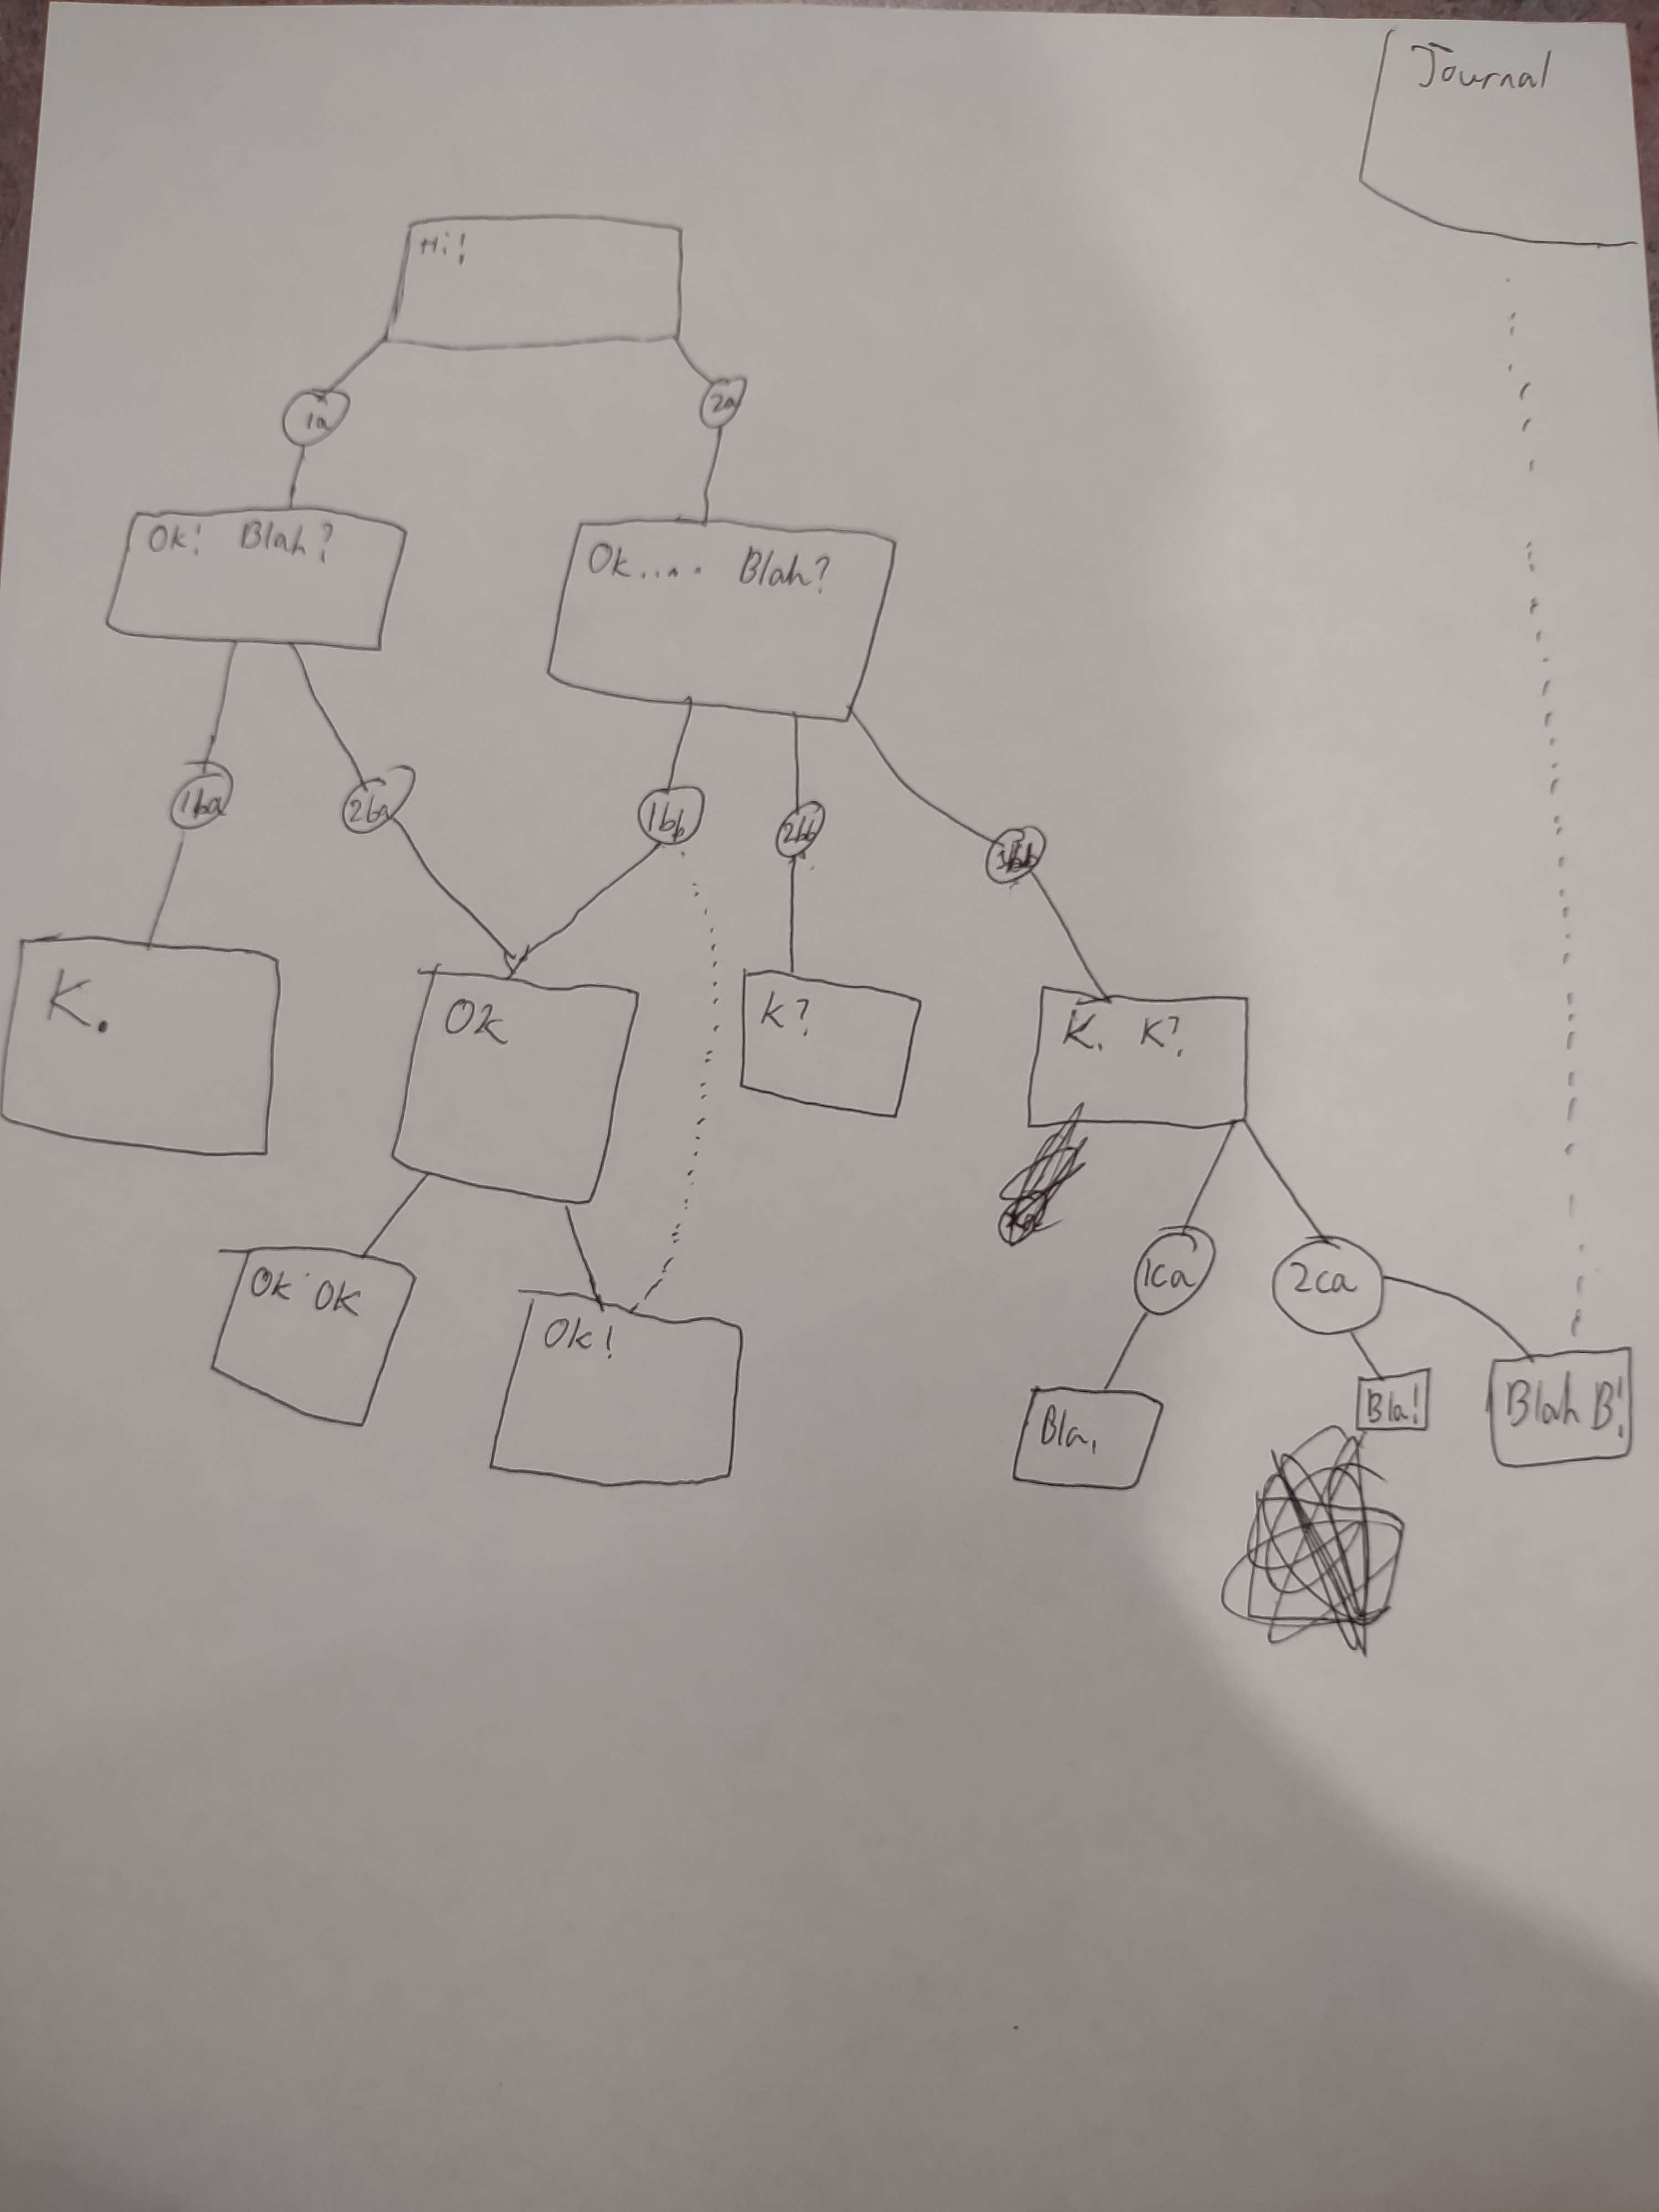 Journal
Hi!
1a
2a
Ok! Blah?
Ok.... Blah?
1ba
2ba
1bb
2bb
3bb
K.
Ok
K?
K. K?
1ca
2ca
Ok Ok
Ok!
Bla.
Bla!
Blah B!